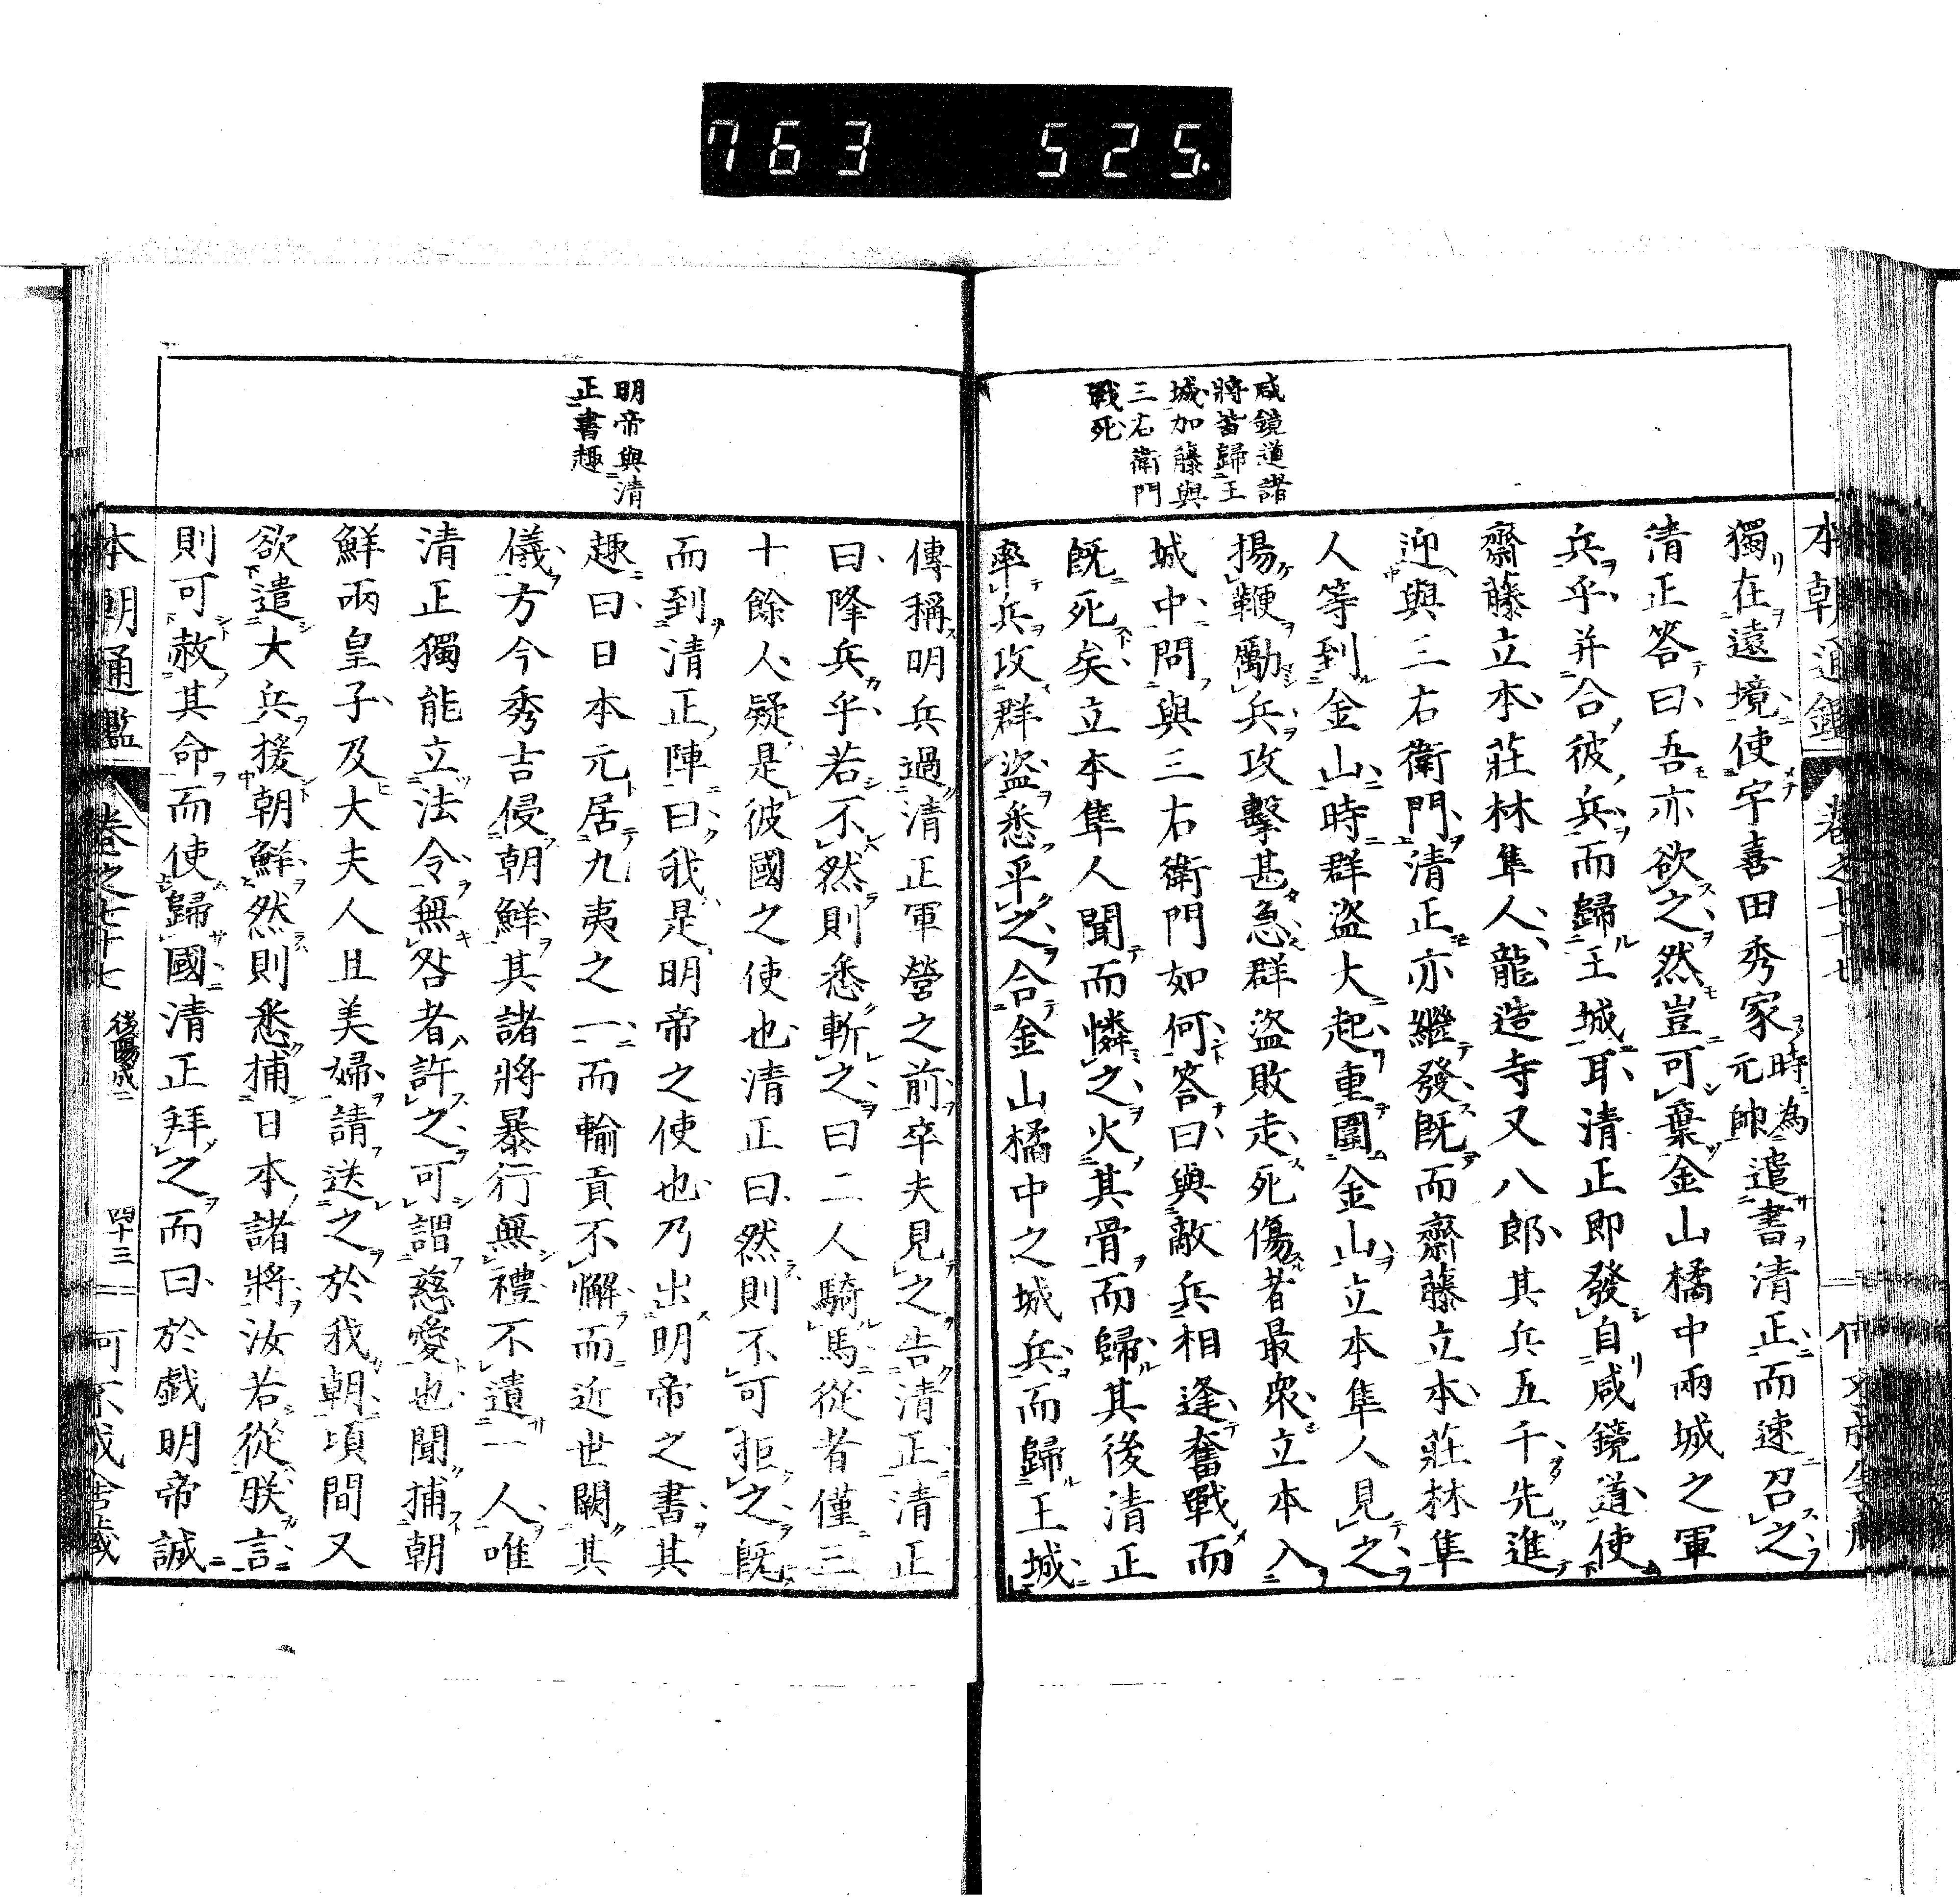 763 525.
咸鏡道諸
將皆歸王
城加藤與
三右衛門
戰死
本朝通鑑
獨在遠境使宇喜田秀家時為元帥遣書清正而速召之
清正答曰吾亦欲之然豈可棄金山橘中兩城之軍
兵乎并合彼兵而歸王城耳清正即發自咸鏡道使
齋藤立本莊林隼人龍造寺又八郎其兵五千先進
迎與三右衛門清正亦繼發既而齋藤立本莊林隼
人等到金山時群盜大起重圍金山立本隼人見之
揚鞭勵兵攻擊甚急群盜敗走死傷者最眾立本入
城中問與三右衛門如何答曰與敵兵相逢奮戰而
既死矣立本隼人聞而憐之火其骨而歸其後清正
率兵攻群盜悉平之合金山橘中之城兵而歸王城
明帝與清
正書趣
傳稱明兵過清正軍營之前卒夫見之告清正清正
曰降兵乎若不然則悉斬之曰二人騎馬從者僅三
十餘人疑是彼國之使也清正曰然則不可拒之既
而到清正陣曰我是明帝之使也乃出明帝之書其
趣曰日本元居九夷之一而輸貢不懈而近世闕其
儀方今秀吉侵朝鮮其諸將暴行無禮不遺一人唯
清正獨能立法令無咎者許之可謂慈愛也聞捕朝
鮮兩皇子及大夫人且美婦請送之於我朝頃間又
欲遣大兵援朝鮮然則悉捕日本諸將汝若從朕言
則可赦其命而使歸國清正拜之而曰於戲明帝誠
本朝通鑑 卷之七十七 後陽成二 四十三